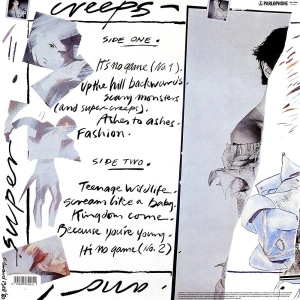 creeps
PARLOPHONE
SIDE ONE.
It's no game (No. 1).
Up the hill backwards.
Scary monsters
(and super creeps).
Ashes to ashes.
Fashion.
SIDE TWO.
Teenage wildlife.
Scream like a baby.
Kingdom come.
Because you're young.
It's no game (No. 2)
super
and